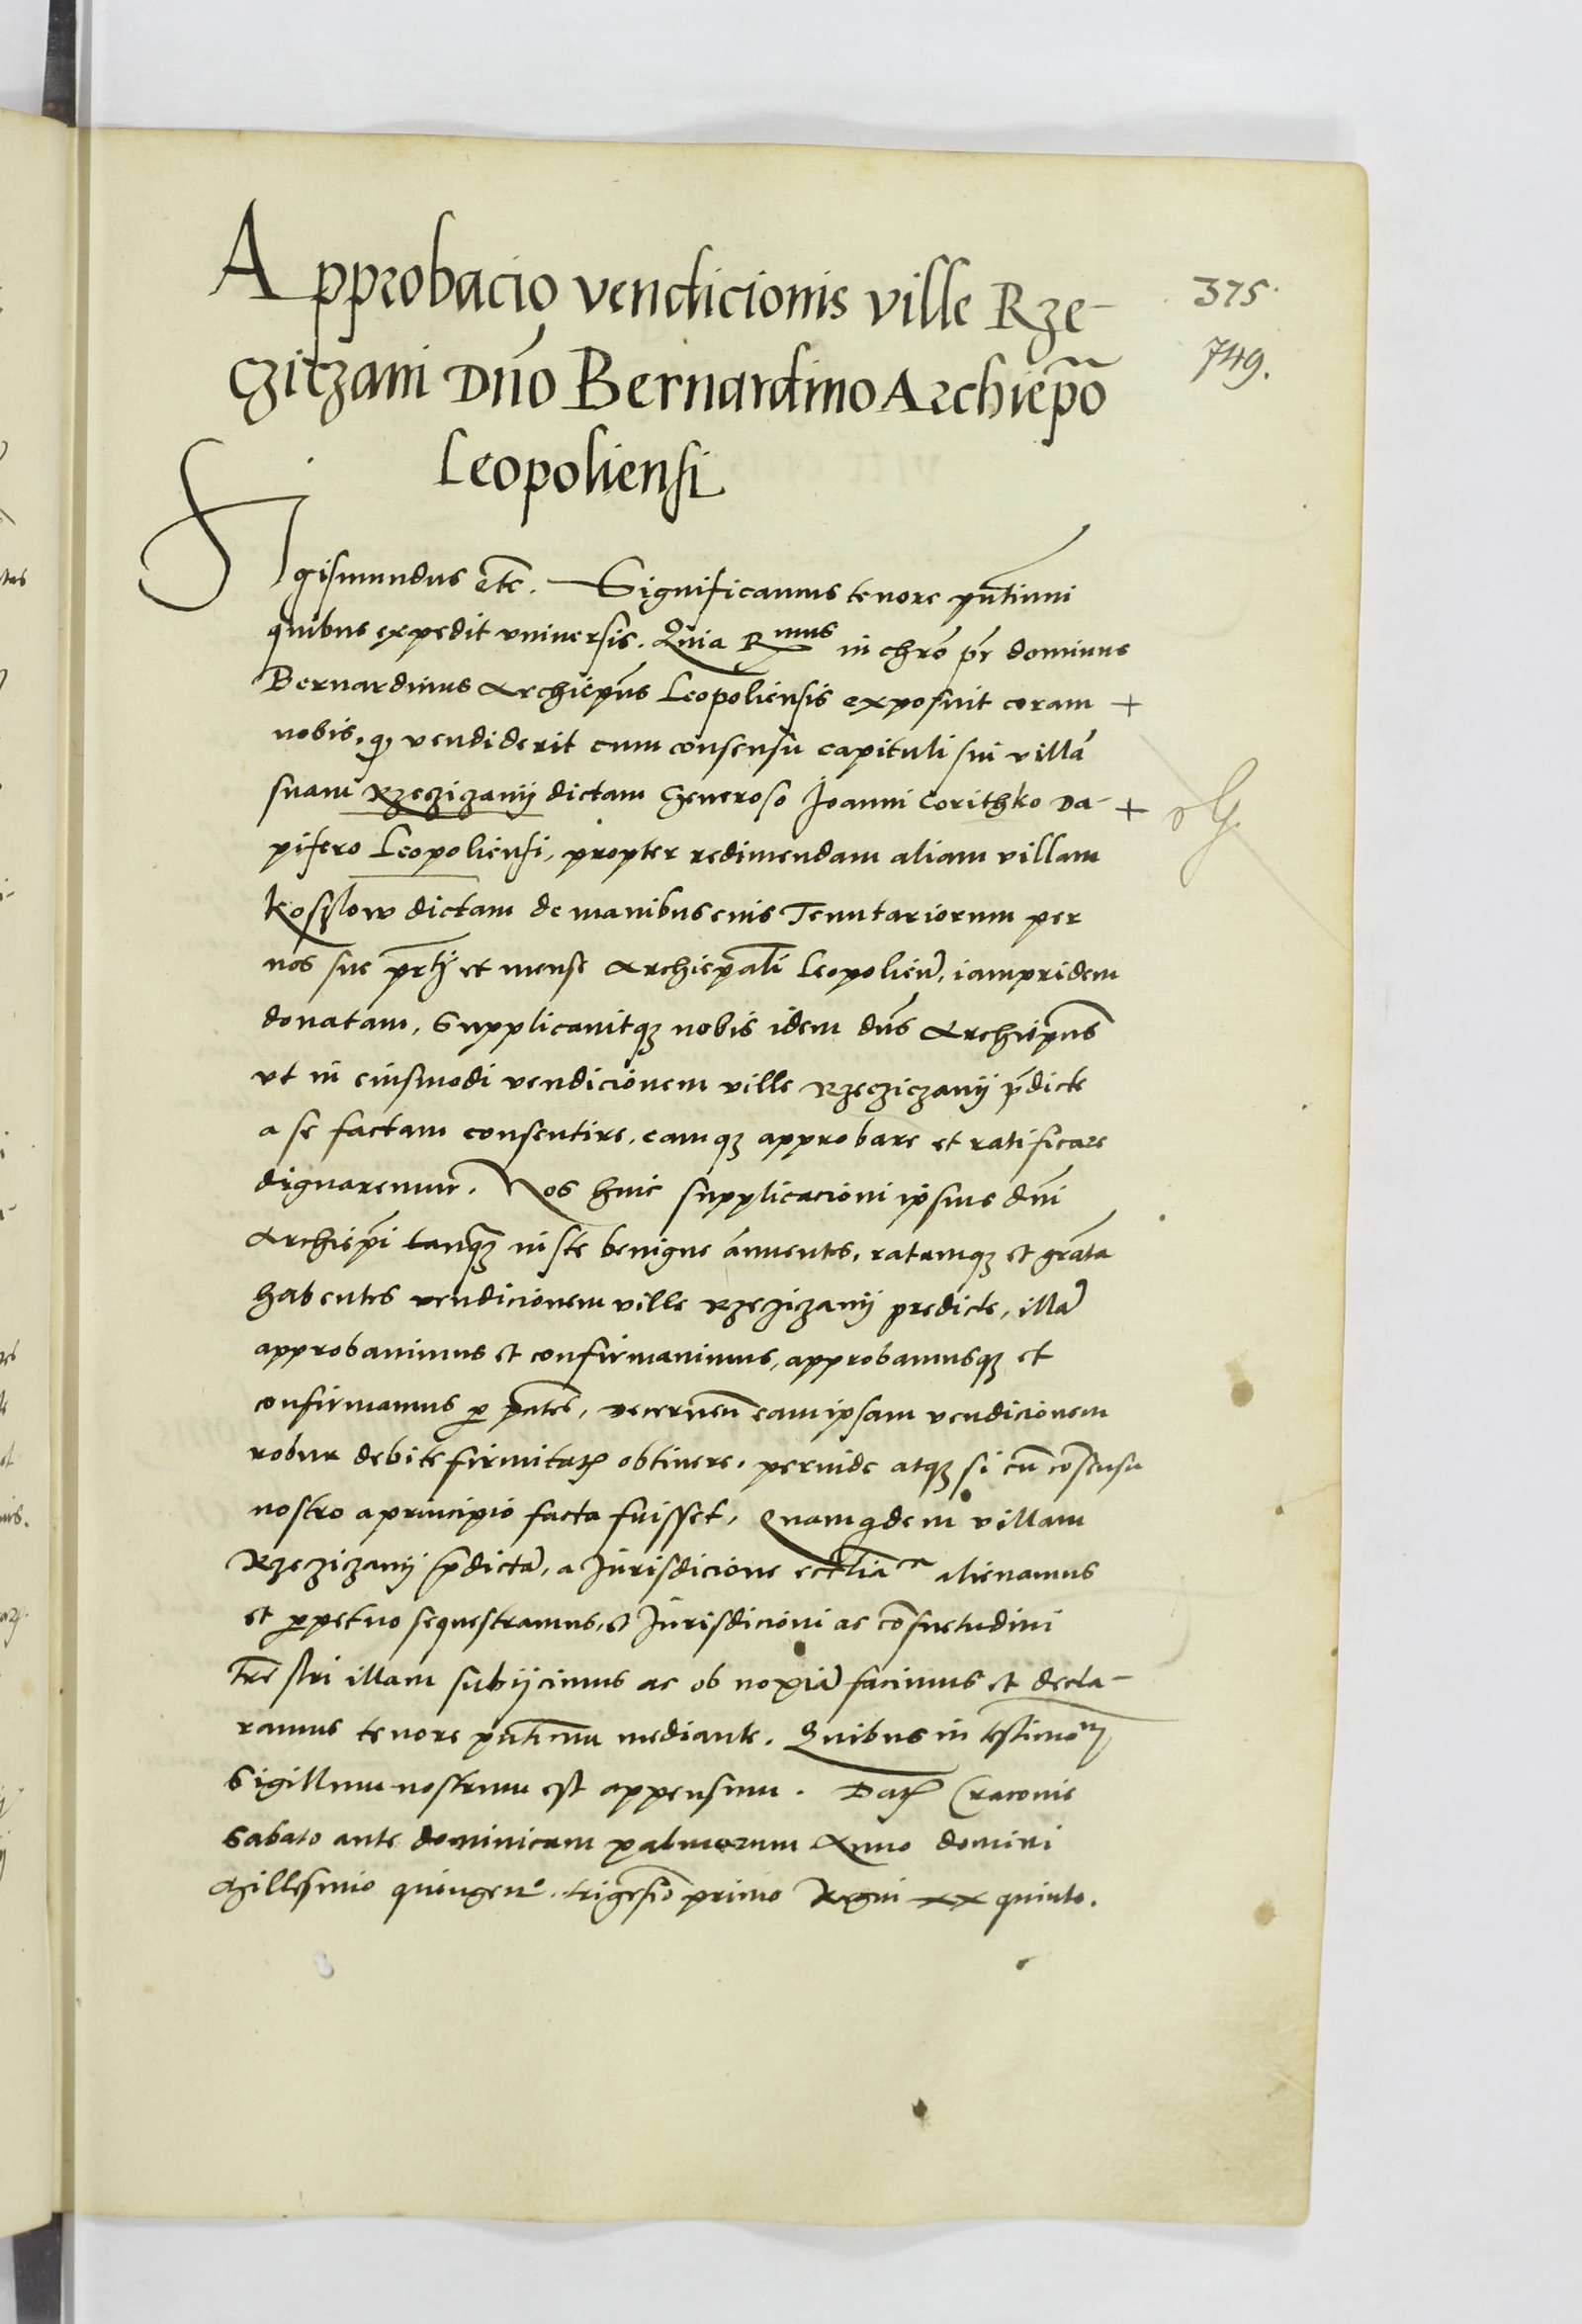 Approbacio vendicionis ville Rze-
375.
czitzani Dno Bernardino Archiepo
749.
Leopoliensi
Sigismundus etc. Significamus tenore pntium
quibus expedit vniuersis. Quia Rmus in chro pr dominus
Bernardinus Archiepus Leopoliensis exposuit coram +
nobis, q vendiderit cum consensu capituli sui villa
suam Rzecziczanij dictam Generoso Joanni Corithko Da- +
pifero Leopoliensi, propter redimendam aliam villam
Koslow dictam de manibus Tenutariorum per
nos sue et mense Archiepali Leopolien, iampridem
donatam, Supplicauitq nobis idem dns Archiepus
vt in eiusmodi vendicionem ville Rzecziczanij pdicte
a se factam consentire, eamq approbare et ratificare
dignaremur. Nos huic supplicacioni ipsius dni
Archiepi tanq iuste benigne annuentes, ratamq et grata
habentes vendicionem ville Rzecziczanij predicte, illa
approbauimus et confirmauimus, approbamusq et
confirmamus p pntes, decernen eam ipsam vendicionem
robur debite firmitatis obtinere, perinde atq si cu consensu
nostro a principio facta fuisset, Quamqdem villam
Rzecziczanij pdicta, a Jurisdicione ecclia alienamus
et ppetuo sequestramus, et Jurisdicioni ac consuetudini
trestri illam subijcimus ac obnoxia facimus et decla-
ramus tenore pntium mediante. Quibus in testimo
Sigillum nostrum est appensum. Dat Cracouie
Sabato ante dominicam palmarum Anno domini
Millesimo quingen. trigesio primo Regni xx quinto.